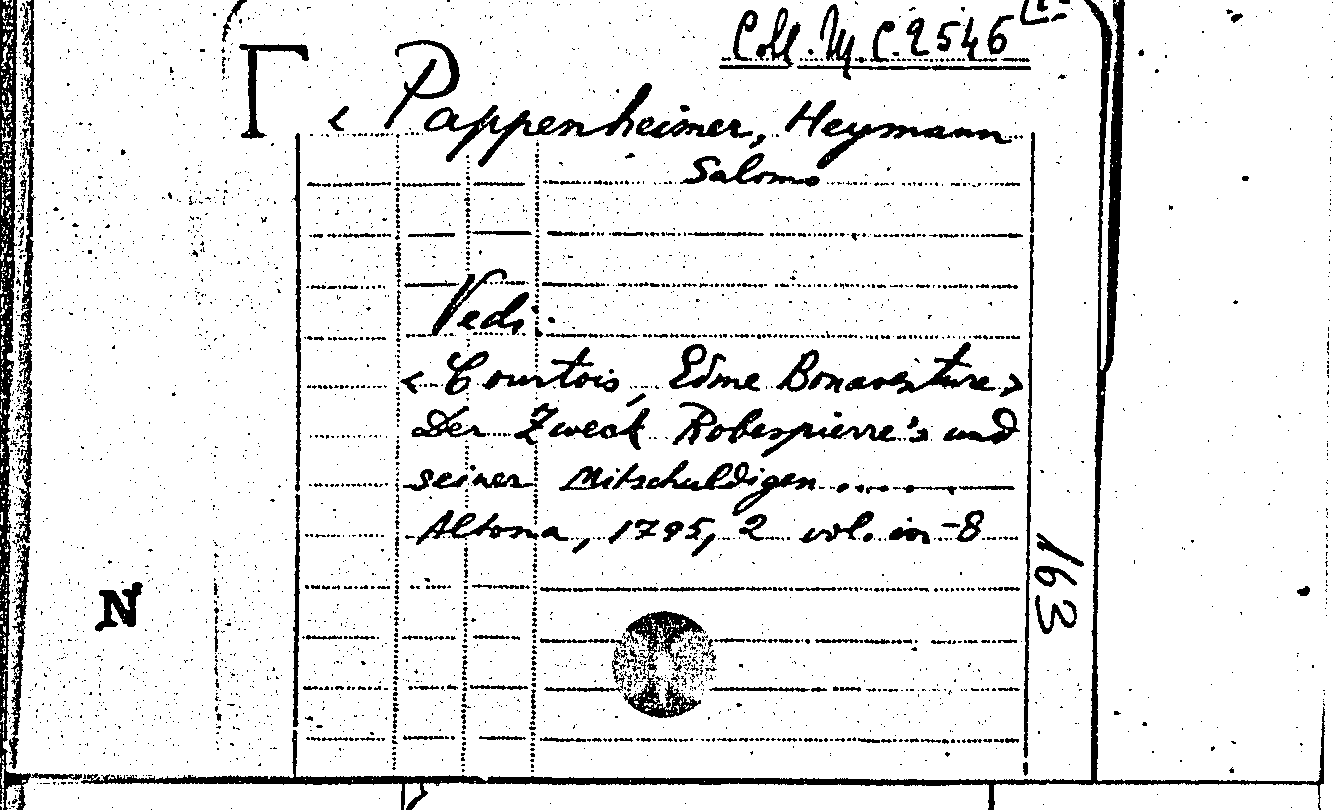 Coll. M. C. 2546
Γ < Pappenheimer, Heymann
Salomo
Vedi:
< Courtois, Edme Bonaventure >
Der Zweck Robespierre's und
seiner Mitschuldigen ......
Altona, 1795, 2 vol. in-8
163
N